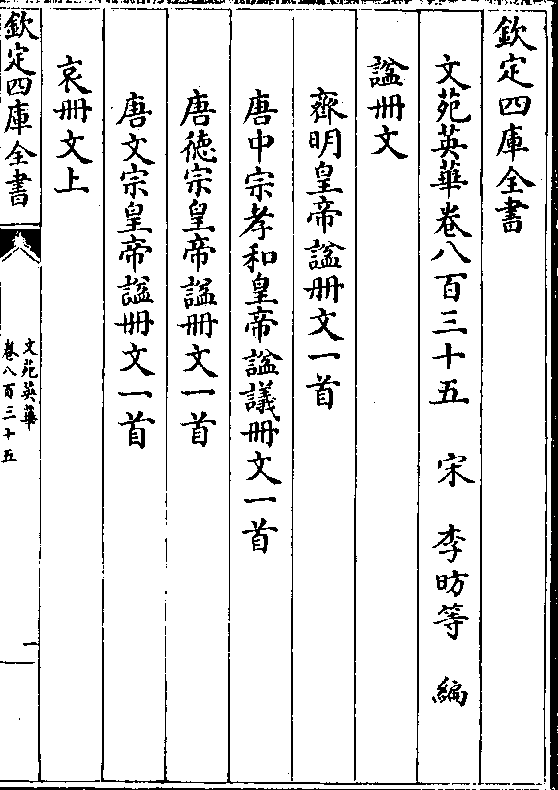 欽定四庫全書
文苑英華卷八百三十五　宋　李昉等　編
諡冊文
齊明皇帝諡冊文一首
唐中宗孝和皇帝諡議冊文一首
唐徳宗皇帝諡冊文一首
唐文宗皇帝諡冊文一首
哀冊文上
欽定四庫全書
文苑英華
卷八百三十五
一